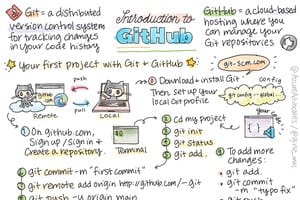 Git = a distributed
version control system
for tracking changes
in your code history
Introduction to
GitHub
GitHub = a cloud-based
hosting where you
can manage your
Git repositories
Your first project with Git + GitHub
git-scm.com
push
pull
Remote
Local
② Download + install Git
Then, set up your
local Git profile
config
git config --global
① On github.com,
Sign up / Sign in +
Create a repository.
Terminal
③ cd my project
git init
git status
git add.
④ To add more
changes:
git add.
git commit
-m "typo fix"
git commit -m "first commit"
git remote add origin http://github.com/~git
git push -u origin main